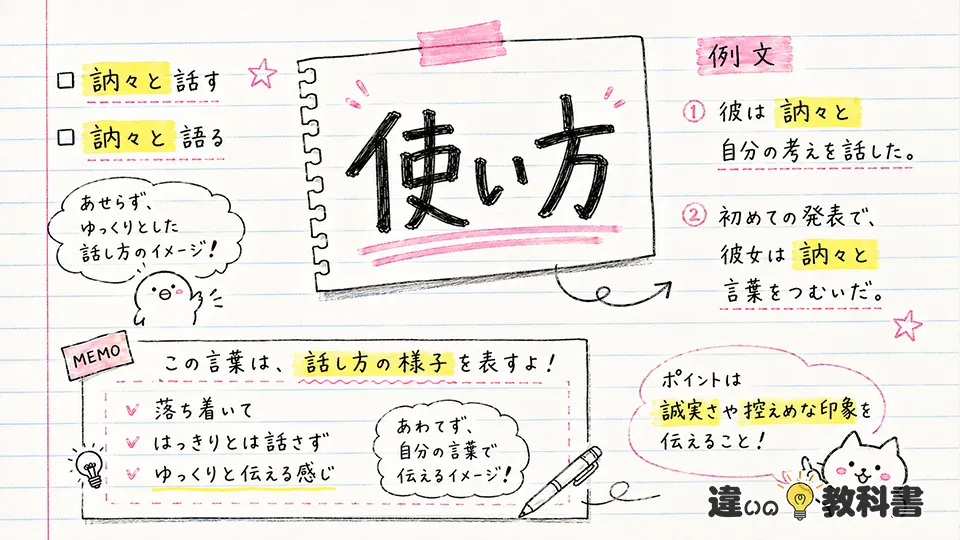 使い方
訥々と 話す
訥々と 語る
あせらず、
ゆっくりとした
話し方のイメージ!
例文
① 彼は 訥々と
自分の考えを話した。
② 初めての発表で、
彼女は 訥々と
言葉をつむいだ。
MEMO
この言葉は、話し方の様子を表すよ!
落ち着いて
はっきりとは話さず
ゆっくりと伝える感じ
あわてず、
自分の言葉で
伝えるイメージ!
ポイントは
誠実さや控えめな印象を
伝えること!
違いの教科書